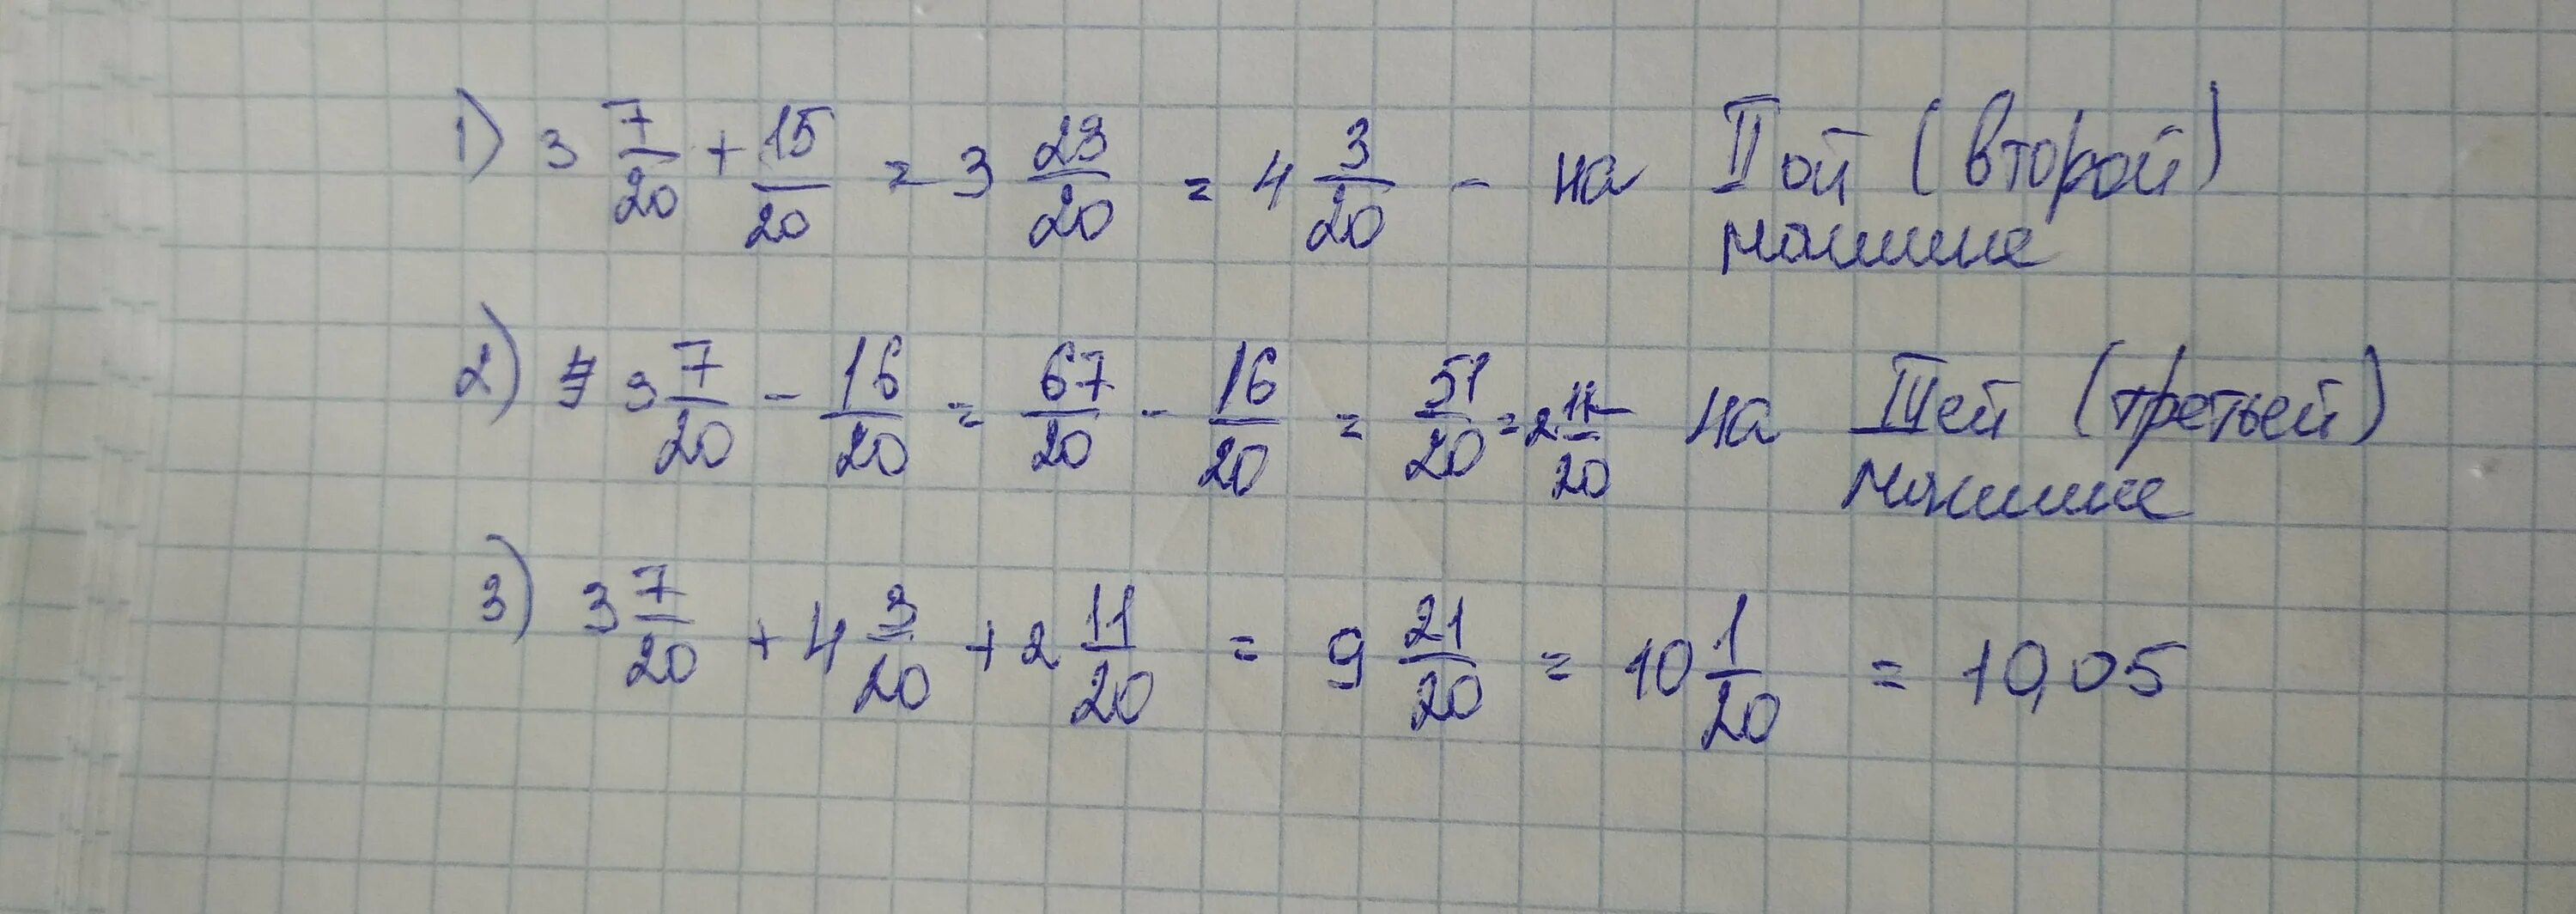 1) 3 7/20 + 15/20 = 3 23/20 = 4 3/20 - на II ой (второй)
машине
2) 3 7/20 - 16/20 = 67/20 - 16/20 = 51/20 = 2 11/20 на III ей (третьей)
машине
3) 3 7/20 + 4 3/20 + 2 11/20 = 9 21/20 = 10 1/20 = 10,05